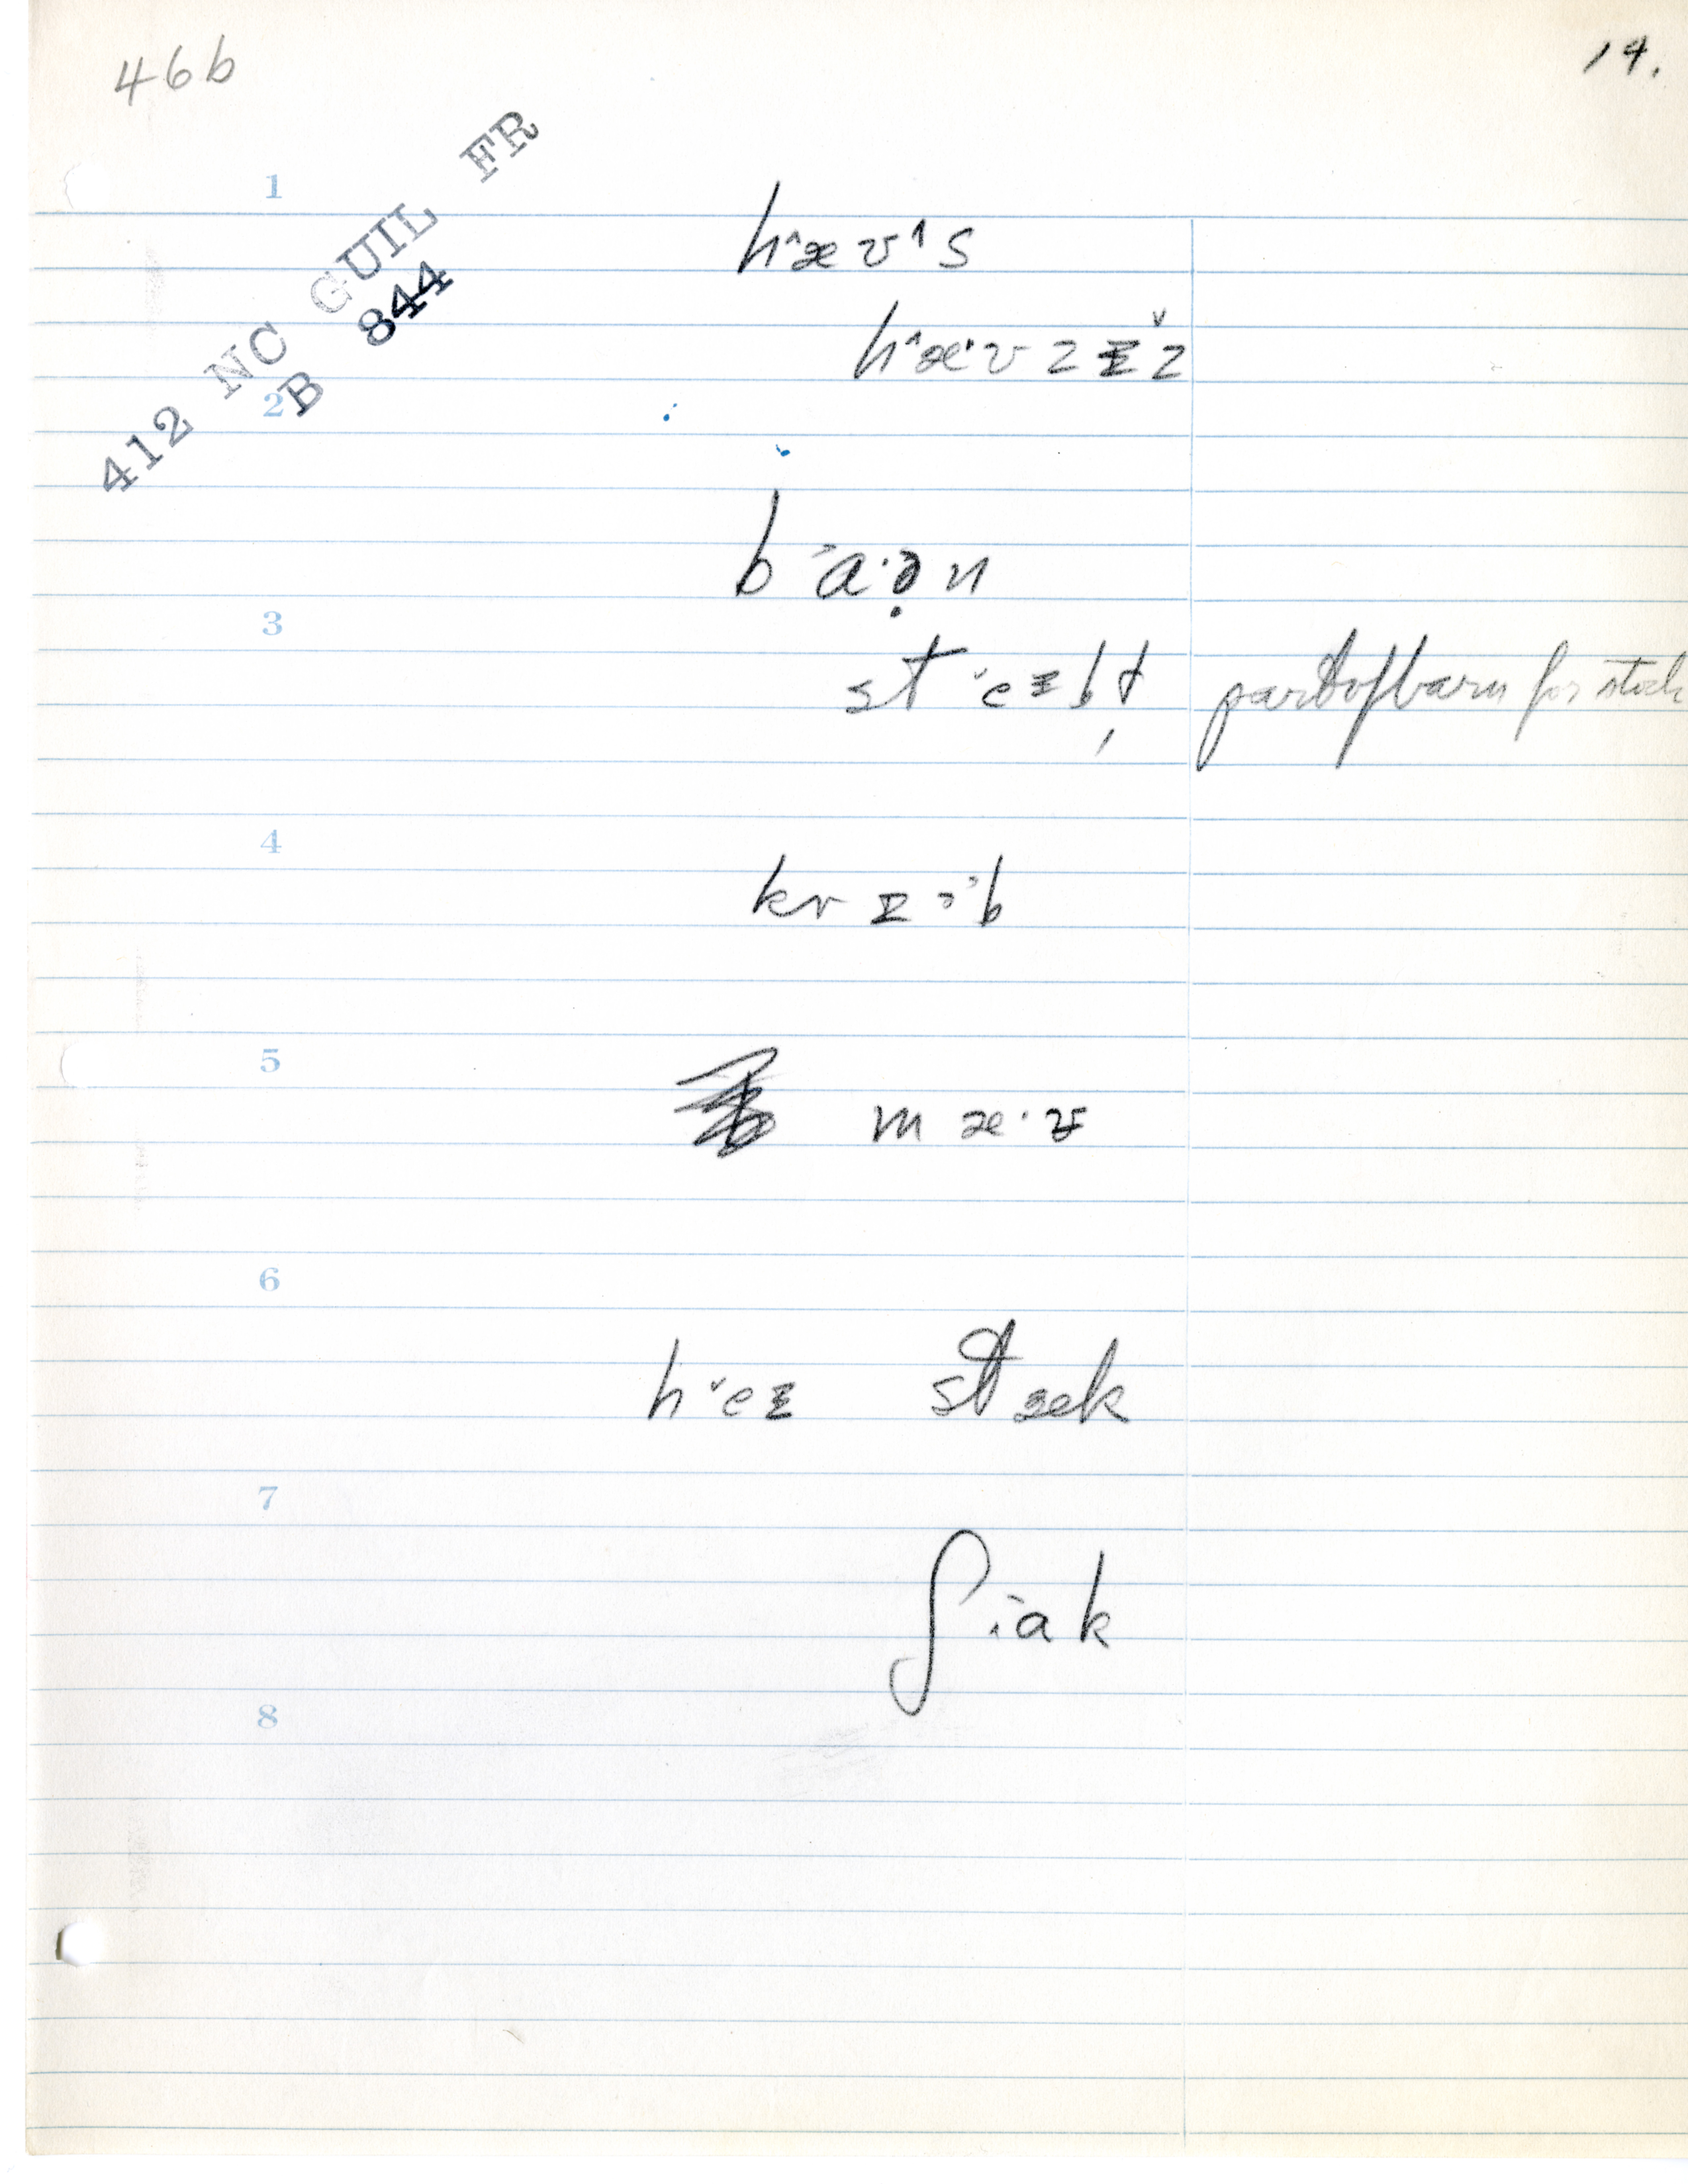 46b
14.
412 NC GUIL FR
B 844
1
h˄æʊ˄s
h˄æ˔ʊzɪ̌z
2
b˃ɑ·ə̣n
3
st˅eɪbḷ partofbarn for stock
4
krɪə˒b
5
mæ·ʊ
6
h˅eɪ stæk
7
ʃak
8